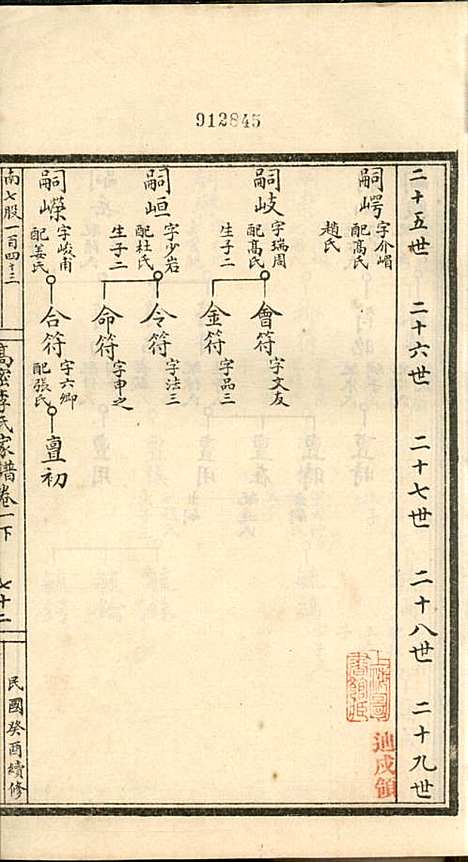 912845
二十五世 二十六世 二十七世 二十八世 二十九世
嗣崿 字介嵋 配高氏 趙氏
嗣岐 字瑞周 配高氏 生子二
會符 字文友
金符 字品三
嗣峘 字少岩 配杜氏 生子二
令符 字法三
命符 字申之
嗣嶸 字峻甫 配姜氏
合符 字六卿 配張氏
亶初
南七股一百四十三
高密李氏家譜卷一下
七十二
民國癸酉續修